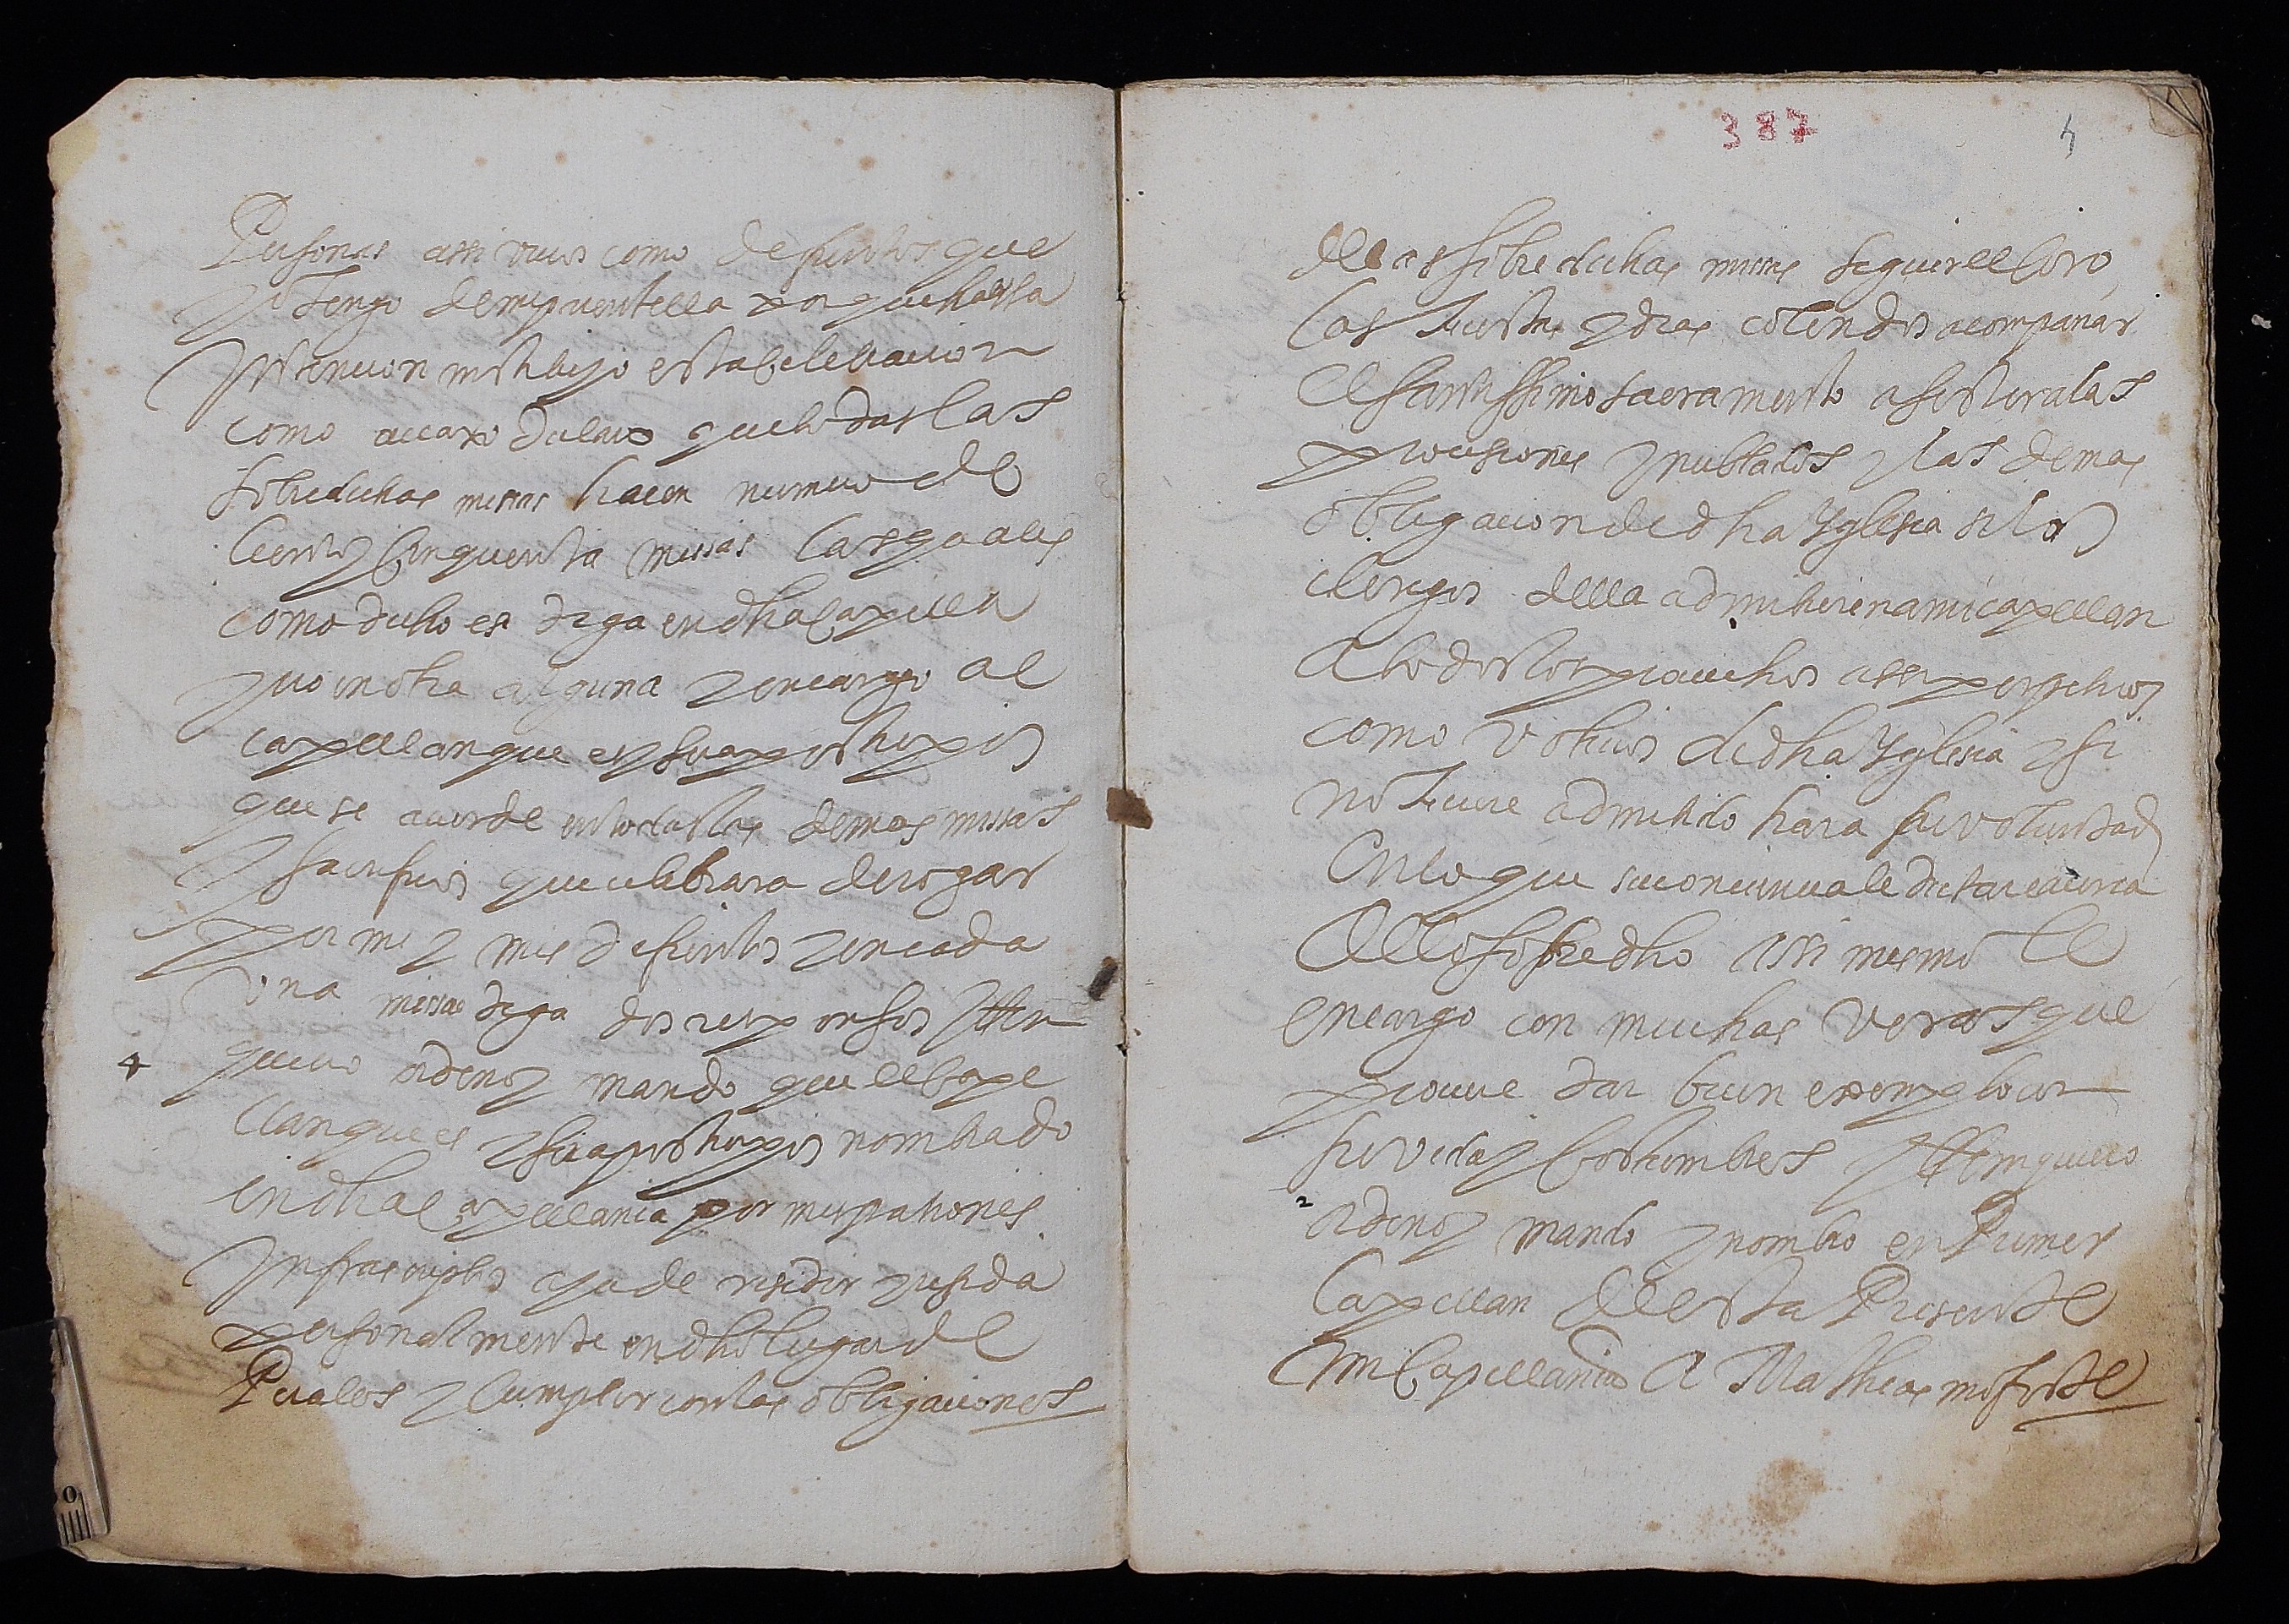 Personas assi vivos como defuntos que
yo tengo de mi parentella por que hasta
Intencion instituyo esta celebracion
como accaxo dalavo que todas las
sobredichas missas hacen numero de
Ciento y Cinquenta missas las quales
como dicho es diga en dha Capilla
y no en otra alguna y encargo al
capellan que es y sera por tiempos
que se acuerde en todas las demas missas
y sacrificios que celebrara de rogar
por mi y mis defuntos y en cada
una missa diga dos responsos Itten
quiero ordeno y mando que el Cape
llan que es y sera por tiempos nombrado
en dha Capellania por mis patrones
Infrascriptos aya de residir y resida
personalmente en dho lugar de
Perales y Cumplir con las obligaciones
387
dellas sobredichas missas seguir el Coro
las fiestas y dias colendos acompañar
el santissimo sacramento assistir a las
procesiones y nublados y las demas
obligacion de dha Yglesia si los
clerigos della admitieren a mi capellan
a todos los provechos assi perpetuos
como votivos de dha Yglesia y si
no fuere admitido hara su voluntad
en lo que su conciencia le dictare acerca
dello sobredho assi mesmo le
encargo con muchas veras que
procure dar buen exemplo con
su vida y Costumbres Itten quiero
ordeno y mando y nombro en Primer
Capellan de esta Presente
mi Capellania a Mathias monforte